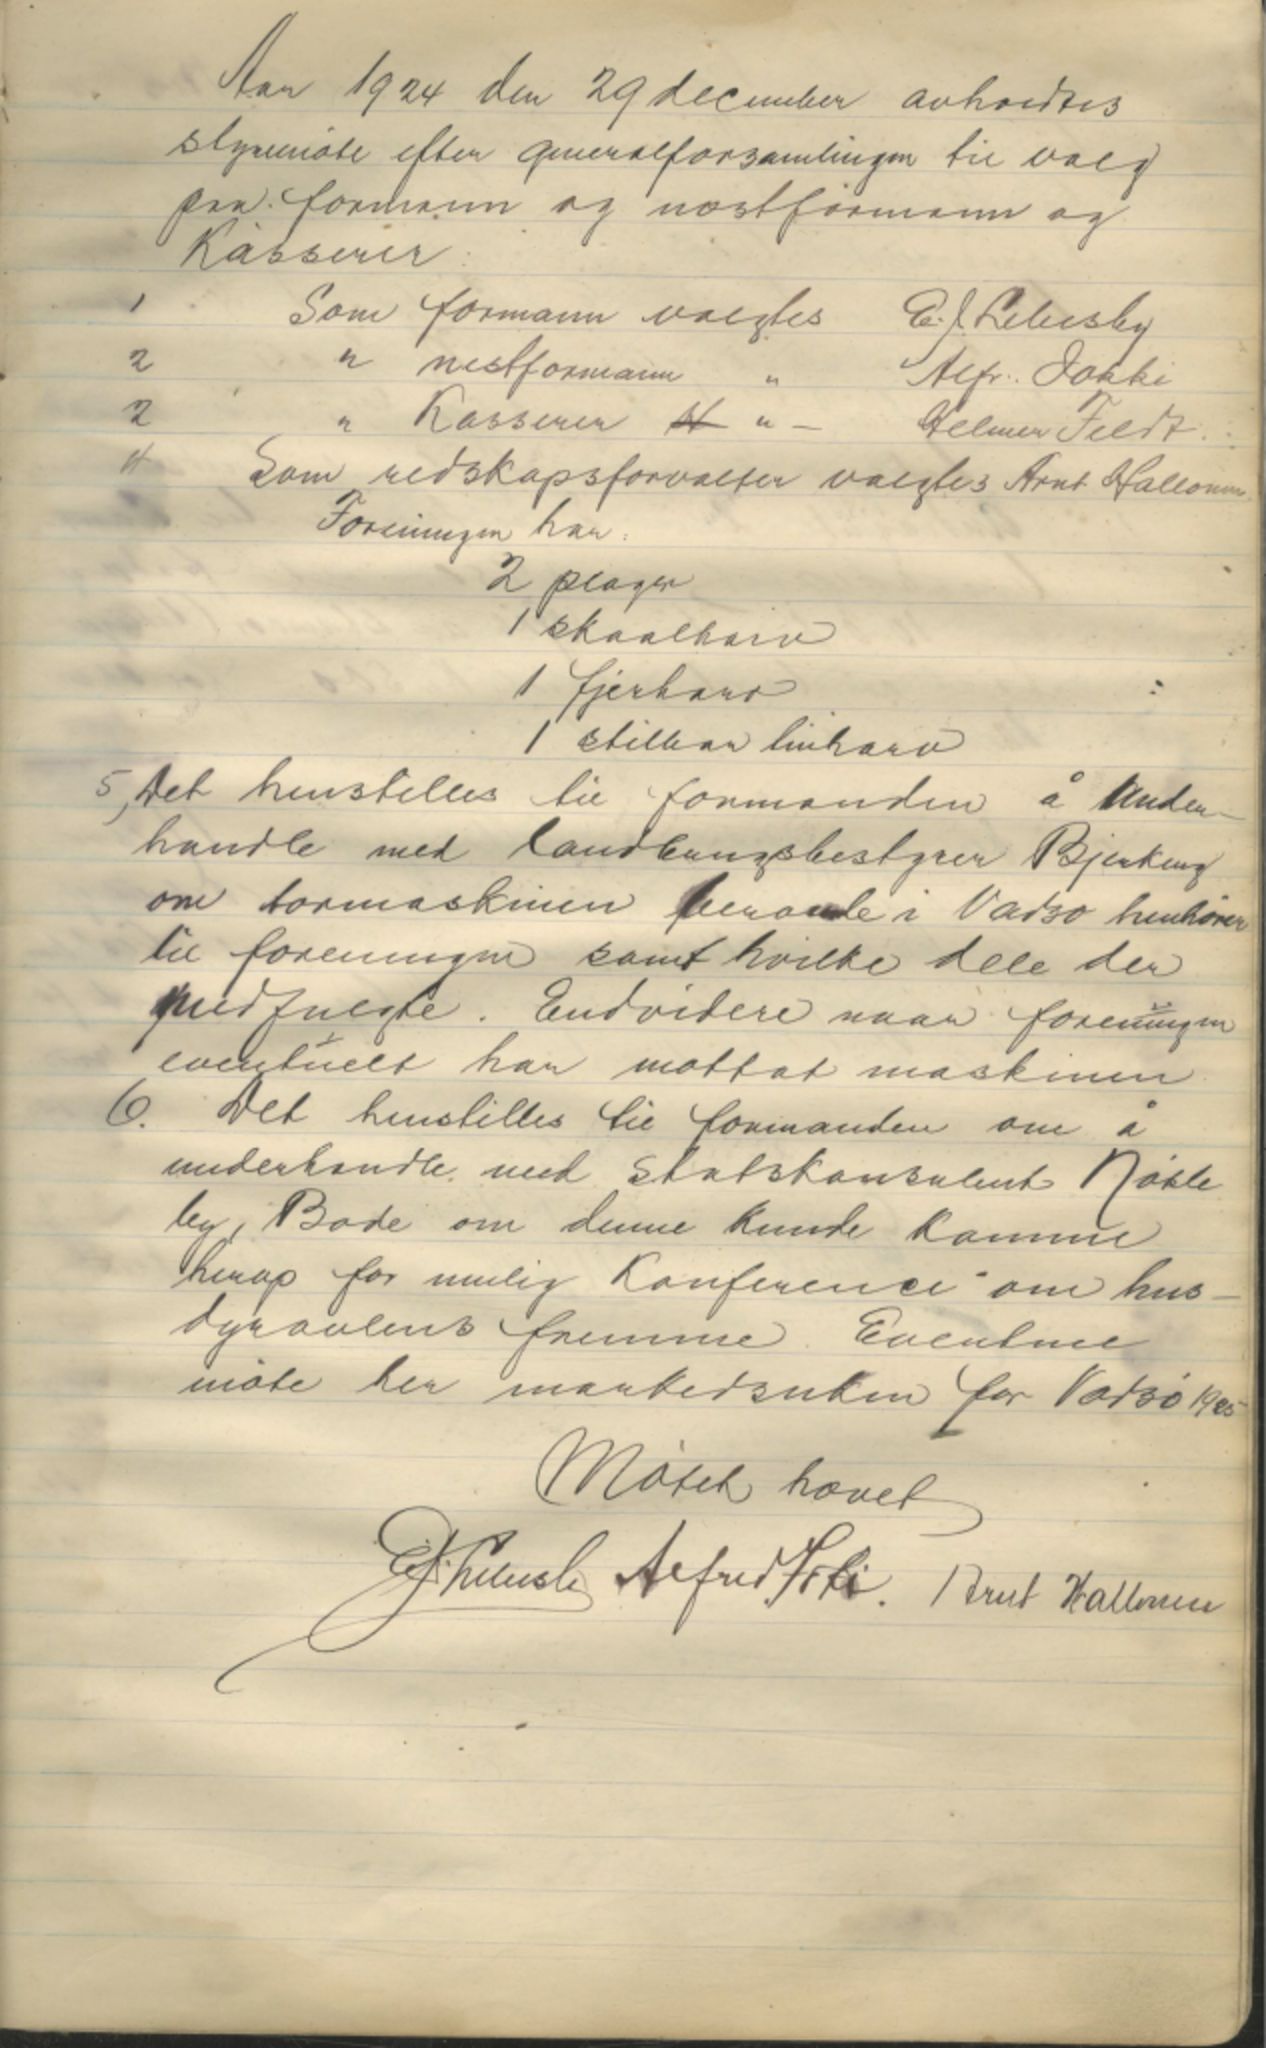 Aar 1924 den 29 december avholdtes
styremöte efter generalforsamlingen til valg
paa formann og næstformann og
Kasserer
1 Som formann valgtes E. J. Lebesby
2 " nestformann " Alfr. Jokki
2 " Kasserer " — Helmer Feldt.
4 Som redskapsforvalter valgtes Arnt Hallonen
Foreningen har:
2 ploger
1 skaalharv
1 fjerharv
1 stilbar linharv
5, Det henstilles til formanden å under-
handle med landbruksbestyrer Bjerkeng
om tormaskinen beroende i Vadsö henhörer
til foreningen samt hvilke dele der
medfulgte. Endvidere naar foreningen
eventuelt har mottat maskinen
6. Det henstilles til formanden om å
underhandle med Statskonsulent Nökle
by, Bodö om denne kunde komme
herop for mulig Konference om hus-
dyravlens fremme. Eventuel
möte her markedsuken for Vadsö 1925
Mötet hævet
E. J. Lebesby Alfred Joki. Arnt Hallonen